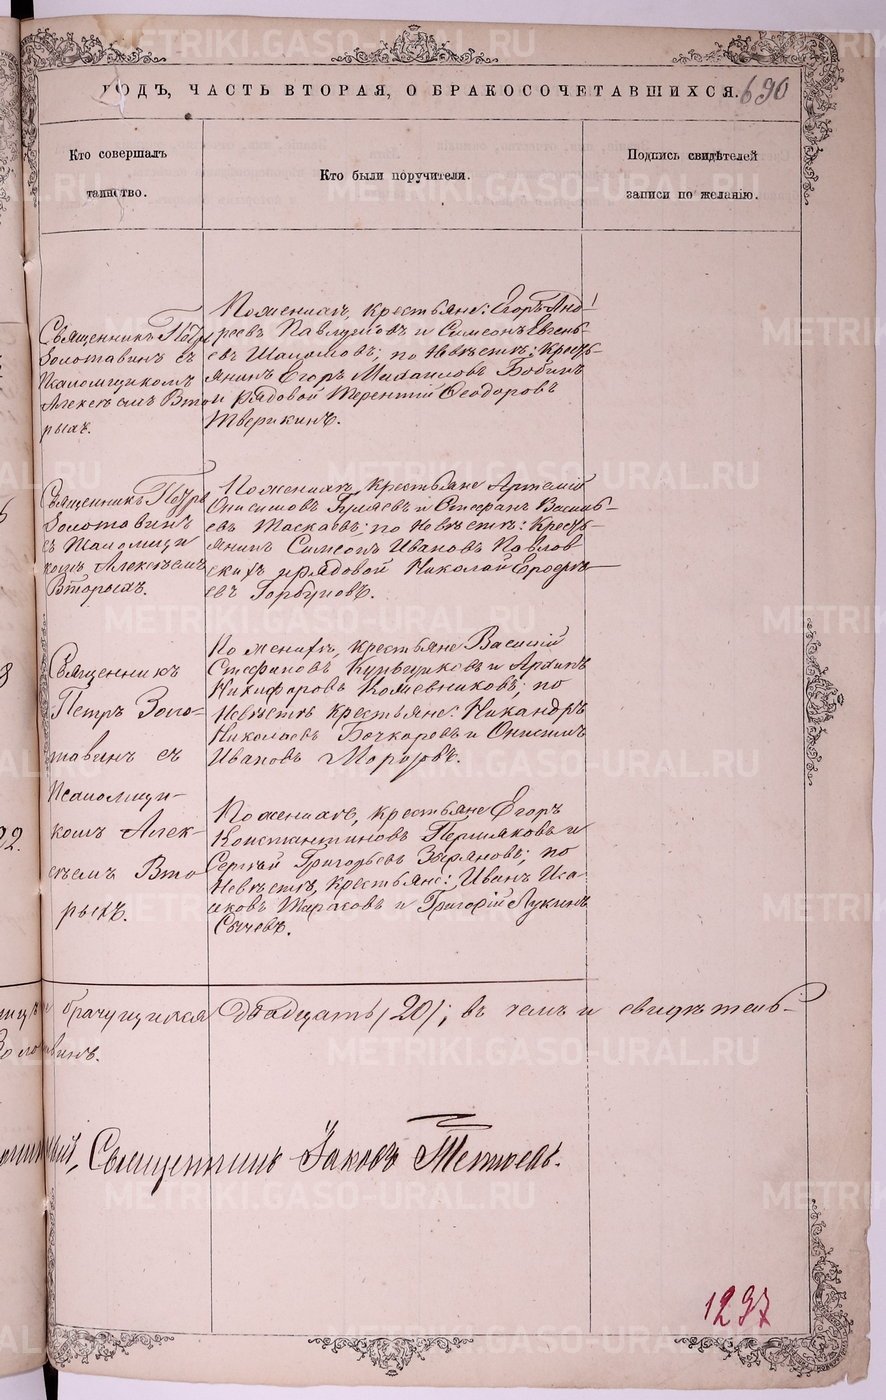 ГОДЪ, ЧАСТЬ ВТОРАЯ, О БРАКОСОЧЕТАВШИХСЯ.
690
Кто совершалъ
таинство.
Кто были поручители.
Подпись свидѣтелей
записи по желанію.
Священникъ Петръ
Золотавинъ съ
Псаломщикомъ
Алексѣемъ Вто
рыхъ.
По женихѣ, крестьяне: Егоръ Анд-
реевъ Павлуш и Симеонъ
евъ Шаламовъ; по Невѣстѣ: Кресть-
янинъ Егоръ Михаиловъ Бобинъ
и рядовой Терентій Ѳеодоровъ
Тверикинъ.
Священникъ Петръ
Золотавинъ
съ Псаломщи
комъ Алексѣемъ
Вторыхъ.
По женихѣ, крестьяне Артемій
Онисимовъ Гуляевъ и Стефанъ Василь-
евъ Таскаевъ; по Невѣстѣ: Кресть-
янинъ Симеонъ Ивановъ Павлов-
скихъ и рядовой Николай Ерофѣ-
евъ Горбуновъ.
Священникъ
Петръ Золо-
тавинъ съ
Псаломщи-
комъ Алек-
сѣемъ Вто
рыхъ.
По женихѣ, крестьяне Василій
Стефановъ и Архипъ
Никифоровъ Кожевниковъ; по
Невѣстѣ крестьяне: Никандръ
Николаевъ Бочкаревъ и Онисимъ
Ивановъ Морозовъ.
По женихѣ, крестьяне Егоръ
Константиновъ Пермяковъ и
Сергѣй Григорьевъ Зыряновъ; по
Невѣстѣ, крестьяне: Иванъ Иса-
аковъ и Григорій Лукинъ
Сычевъ.
двадцать /20/; въ чемъ и свидѣтель-
Священникъ Іаковъ
1297
METRIKI.GASO-URAL.RU